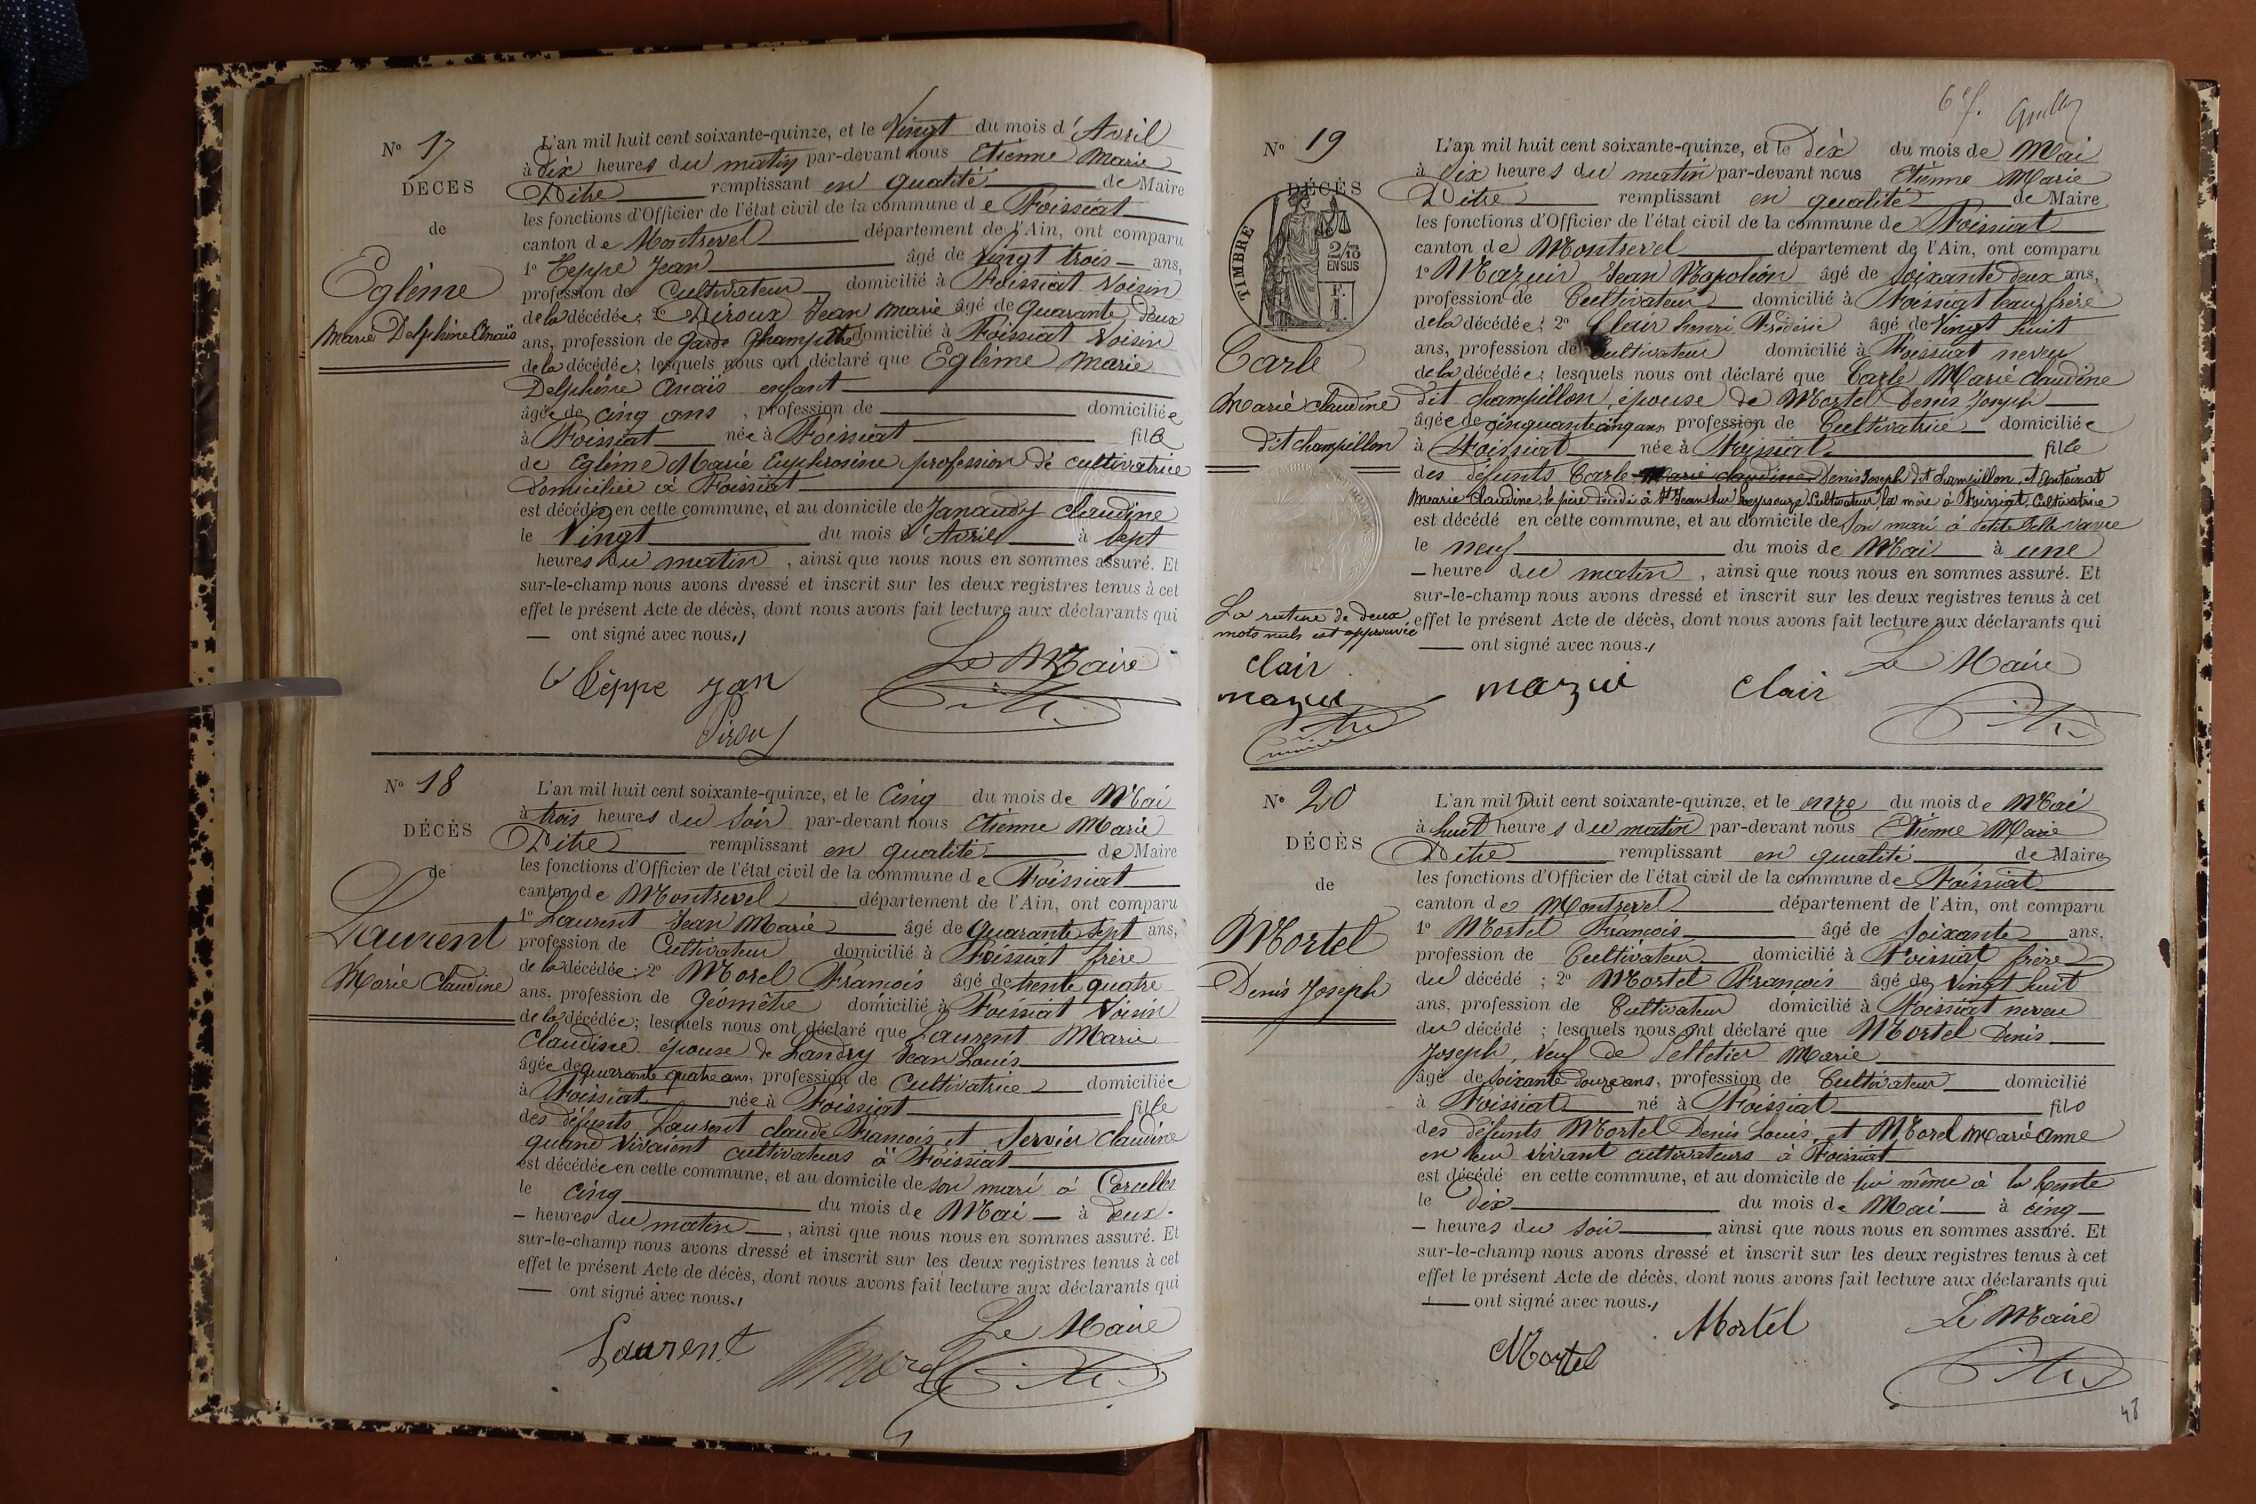 N° 17
DÉCÈS
de
Egléme
Marie Delphine Anaïs
L'an mil huit cent soixante-quinze, et le Vingt du mois d'Avril
à dix heures du matin par-devant nous Etienne Marie
Pitre remplissant en qualité de Maire
les fonctions d'Officier de l'état civil de la commune de Foissiat
canton de Montrevel département de l'Ain, ont comparu
1° Teppe Jean âgé de Vingt trois ans,
profession de Cultivateur domicilié à Foissiat Voisin
de la décédée; 2° Piroux Jean Marie âgé de Quarante deux
ans, profession de Garde Champêtre domicilié à Foissiat Voisin
de la décédée; lesquels nous ont déclaré que Egléme Marie
Delphine Anaïs enfant
âgée de cinq ans, profession de domiciliée
à Foissiat née à Foissiat fille
de Egléme Marie Euphrosine profession de cultivatrice
domiciliée à Foissiat
est décédée en cette commune, et au domicile de Janaudy Claudine
le Vingt du mois d'Avril à sept
heures du matin, ainsi que nous nous en sommes assuré. Et
sur-le-champ nous avons dressé et inscrit sur les deux registres tenus à cet
effet le présent Acte de décès, dont nous avons fait lecture aux déclarants qui
ont signé avec nous.
Le Maire
Teppe Jan
Pirou
N° 18
DÉCÈS
de
Laurent
Marie Claudine
L'an mil huit cent soixante-quinze, et le Cinq du mois de Mai
à trois heures du Soir par-devant nous Etienne Marie
Pitre remplissant en qualité de Maire
les fonctions d'Officier de l'état civil de la commune de Foissiat
canton de Montrevel département de l'Ain, ont comparu
1° Laurent Jean Marie âgé de Quarante sept ans,
profession de Cultivateur domicilié à Foissiat frère
de la décédée; 2° Morel François âgé de trente quatre
ans, profession de Géomètre domicilié à Foissiat Voisin
de la décédée; lesquels nous ont déclaré que Laurent Marie
Claudine épouse de Landry Jean Louis
âgée de quarante quatre ans, profession de Cultivatrice domiciliée
à Foissiat née à Foissiat fille
des défunts Laurent Claude François et Servier Claudine
quand vivaient cultivateurs à Foissiat
est décédée en cette commune, et au domicile de son mari à Corcelles
le cinq du mois de Mai à deux
heures du matin, ainsi que nous nous en sommes assuré. Et
sur-le-champ nous avons dressé et inscrit sur les deux registres tenus à cet
effet le présent Acte de décès, dont nous avons fait lecture aux déclarants qui
ont signé avec nous.
Le Maire
Laurent Morel
N° 19
DÉCÈS
TIMBRE
2/10
EN SUS
Carle
Marie Claudine
dit Champillon
L'an mil huit cent soixante-quinze, et le dix du mois de Mai
à dix heures du matin par-devant nous Etienne Marie
Pitre remplissant en qualité de Maire
les fonctions d'Officier de l'état civil de la commune de Foissiat
canton de Montrevel département de l'Ain, ont comparu
1° Mazuir Jean Napoléon âgé de Soixante deux ans,
profession de Cultivateur domicilié à Foissiat beau frère
de la décédée; 2° Clair henri Frédéric âgé de Vingt huit
ans, profession de Cultivateur domicilié à Foissiat neveu
de la décédée; lesquels nous ont déclaré que Carle Marie Claudine
dit Champillon, épouse de Mortel Denis Joseph
âgée de cinquante cinq ans, profession de Cultivatrice domiciliée
à Foissiat née à Foissiat fille
des défunts Carle Marie Claudine Denis Joseph dit Champillon, et
Marie Claudine, le père décédé à St Jean sur Reyssouze Cultivateur, la mère à Foissiat, Cultivatrice
est décédé en cette commune, et au domicile de son mari à
le neuf du mois de Mai à une
heure du matin, ainsi que nous nous en sommes assuré. Et
sur-le-champ nous avons dressé et inscrit sur les deux registres tenus à cet
effet le présent Acte de décès, dont nous avons fait lecture aux déclarants qui
ont signé avec nous.
La rature de deux
mots nuls est approuvée
Clair
mazui
Le Maire
mazui Clair
N° 20
DÉCÈS
de
Mortel
Denis Joseph
L'an mil huit cent soixante-quinze, et le onze du mois de Mai
à huit heures du matin par-devant nous Etienne Marie
Pitre remplissant en qualité de Maire
les fonctions d'Officier de l'état civil de la commune de Foissiat
canton de Montrevel département de l'Ain, ont comparu
1° Mortel François âgé de Soixante ans,
profession de Cultivateur domicilié à Foissiat frère
du décédé; 2° Mortel François âgé de Vingt huit
ans, profession de Cultivateur domicilié à Foissiat neveu
du décédé; lesquels nous ont déclaré que Mortel Denis
Joseph, Veuf de Pelletier Marie
âgé de soixante douze ans, profession de Cultivateur domicilié
à Foissiat né à Foissiat fils
des défunts Mortel Denis Louis, et Morel Marie Anne
en leur vivant cultivateurs à Foissiat
est décédé en cette commune, et au domicile de lui même à la
le Dix du mois de Mai à cinq
heures du soir ainsi que nous nous en sommes assuré. Et
sur-le-champ nous avons dressé et inscrit sur les deux registres tenus à cet
effet le présent Acte de décès, dont nous avons fait lecture aux déclarants qui
ont signé avec nous.
Le Maire
Mortel Mortel
48